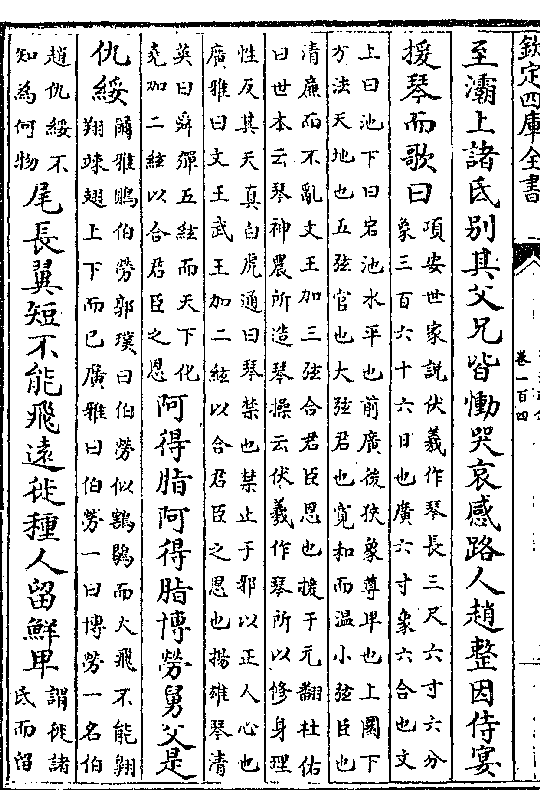 欽定四庫全書
卷一百四
至灞上諸氐别其父兄皆慟哭哀感路人趙整因侍宴
援琴而歌曰
項安世家說伏羲作琴長三尺六寸六分
象三百六十六日也廣六寸象六合也文
上曰池下曰宕池水平也前廣後狹象尊卑也上圓下
方法天地也五弦官也大弦君也寛和而温小弦臣也
清廉而不亂文王加三弦合君臣恩也援于元翻杜佑
曰世本云琴神農所造琴操云伏羲作琴所以修身理
性反其天真白虎通曰琴禁也禁止于邪以正人心也
廣雅曰文王武王加二絃以合君臣之恩也揚雄琴清
英曰舜彈五絃而天下化
堯加二絃以合君臣之恩
阿得脂阿得脂博勞舅父是
仇綏
爾雅鵙伯勞郭璞曰伯勞似鶷鶡而大飛不能翺
翔竦翅上下而已廣雅曰伯勞一曰博勞一名伯
趙仇綏不
知為何物
尾長翼短不能飛遠徙種人留鮮卑
謂徙諸
氐而留